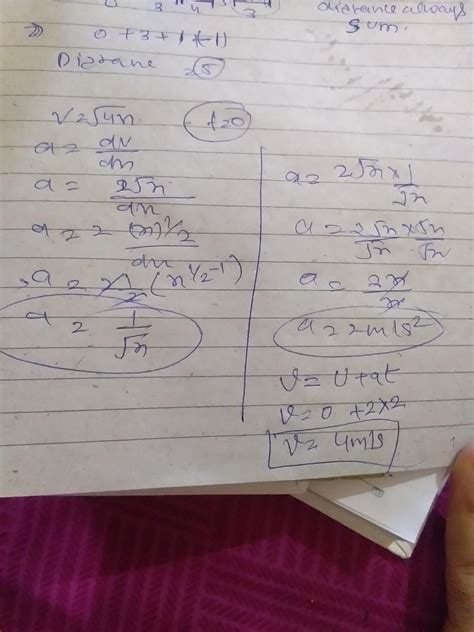 distance always
sum.
=> 0 + 3 + 1 + (-1)
Distane = 5
v = √4x
t=0
a = dv/dx
a = 2√x/dx
a = 2 (x)^1/2/dx
a = 2 1/2 (x^1/2-1)
a = 1/√x
a = 2√x × 1/√x
a = 2√x/√x × √x/√x
a = 2x/x
a = 2m/s²
v = U + at
v = 0 + 2×2
v = 4m/s